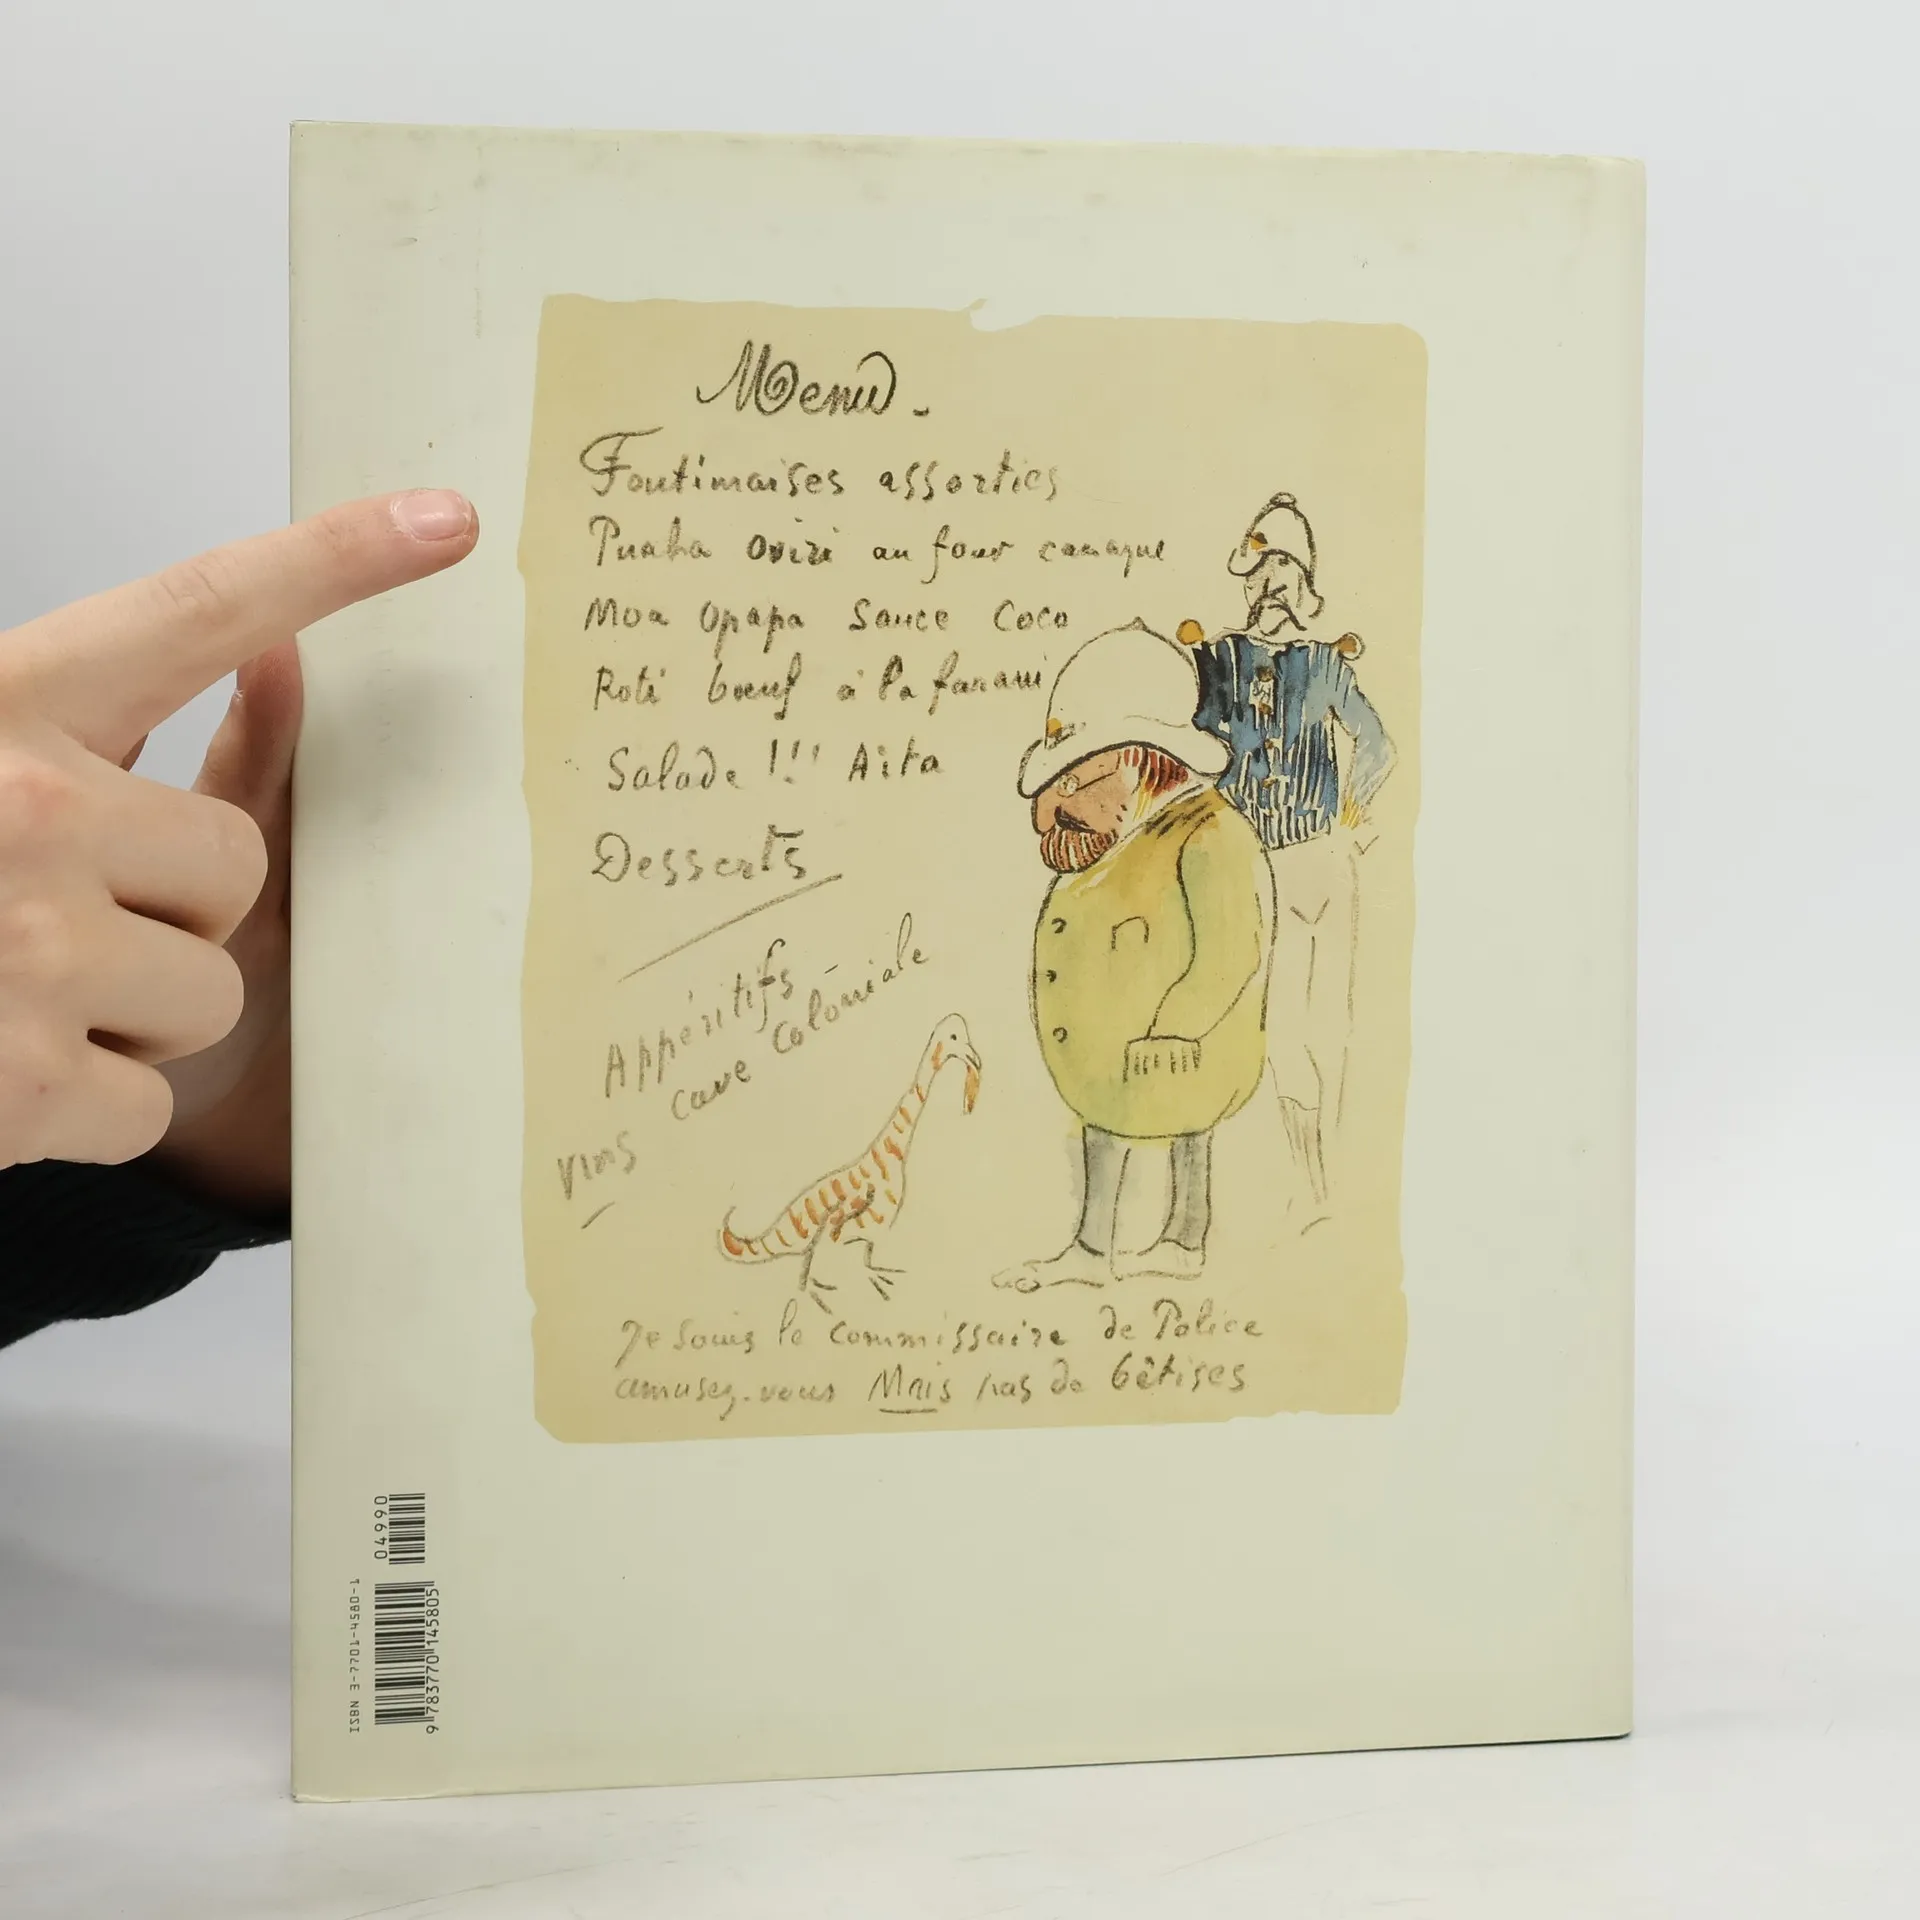 Menu.
Foutimaises assorties
Puaha oviri au four canaque
Moa Opapa Sauce Coco
Roti bœuf à la farani
Salade !!! Aita
Desserts
Appéritifs
cave Coloniale
vins
Je souis le commissaire de Police
amusez-vous Mais pas de bêtises
04990
ISBN 3-7701-4580-1
9 783770 145805